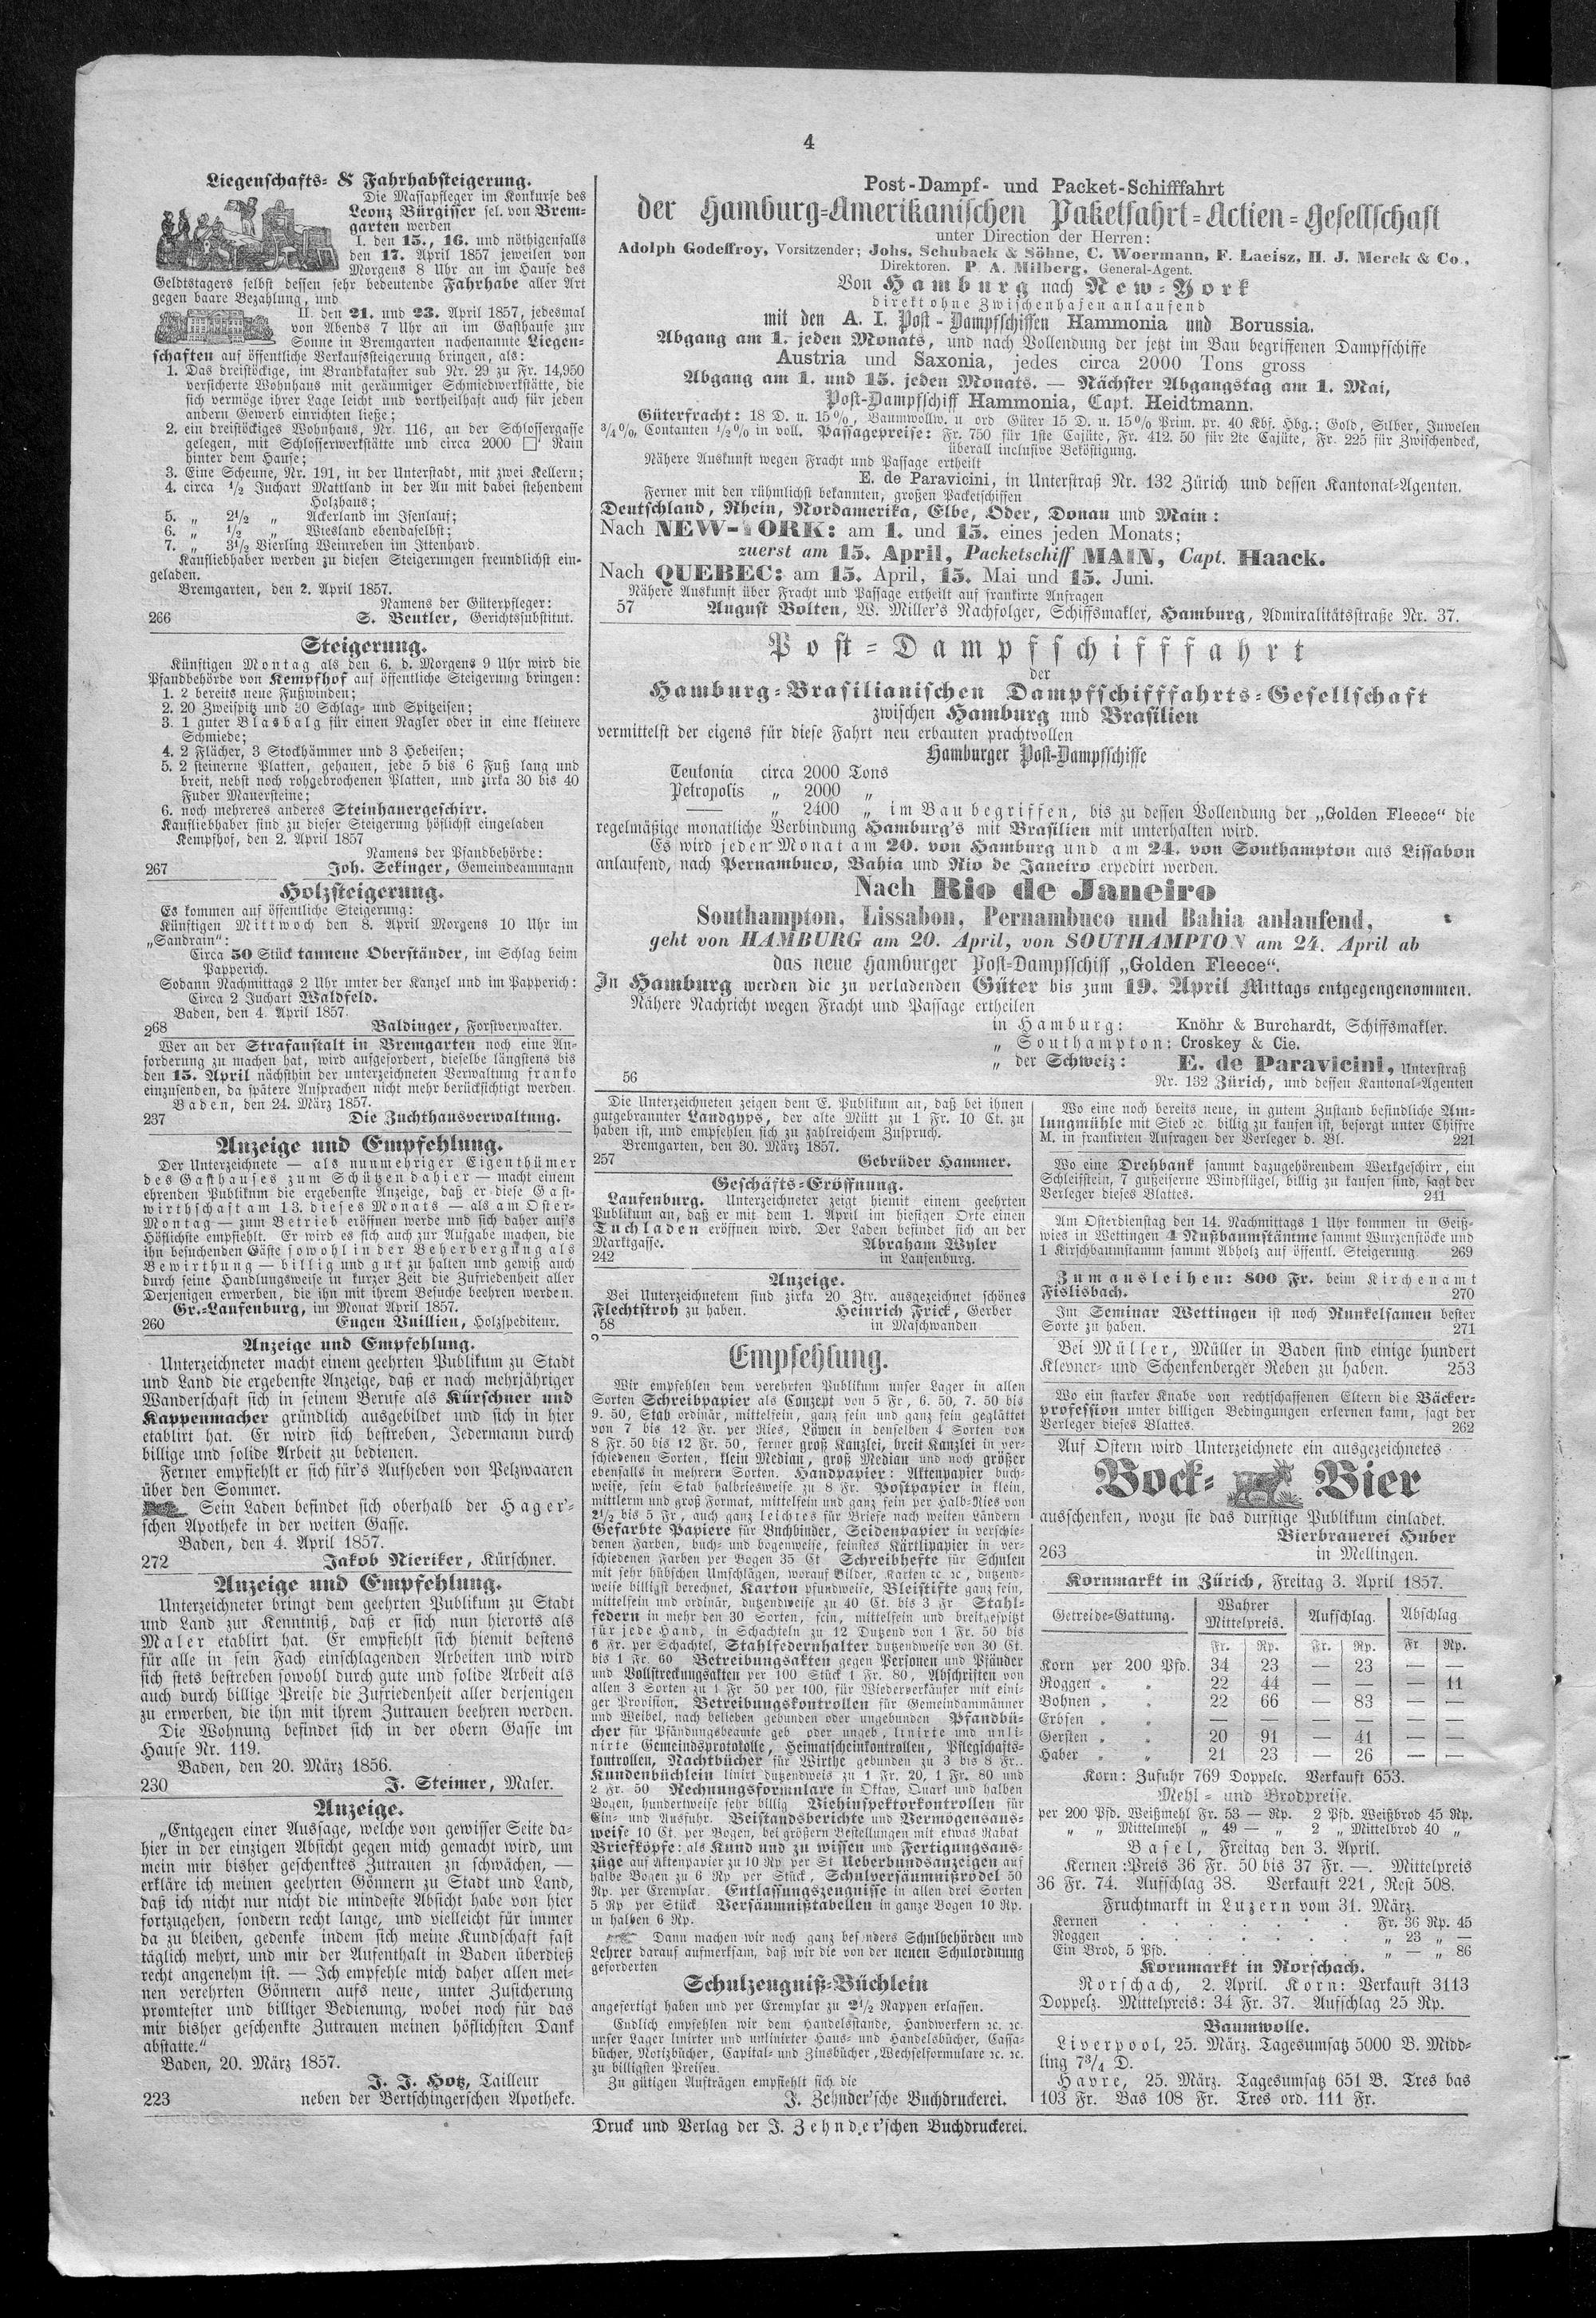 4
Liegenschafts- & Fahrhabsteigerung.
Die Massapfleger im Konkurse des
Leonz Bürgisser sel. von Brem-
garten werden
I. den 15., 16. und nöthigenfalls
den 17. April 1857 jeweilen von
Morgens 8 Uhr an im Hause des
Geldtstagers selbst dessen sehr bedeutende Fahrhabe aller Art
gegen baare Bezahlung, und
II. den 21. und 23. April 1857, jedesmal
von Abends 7 Uhr an im Gasthause zur
Sonne in Bremgarten nachenannte Liegen-
schaften auf öffentliche Verkaufssteigerung bringen, als:
1. Das dreistöckige, im Brandkataster sub Nr. 29 zu Fr. 14,950
versicherte Wohnhaus mit geräumiger Schmiedwerkstätte, die
sich vermöge ihrer Lage leicht und vortheilhaft auch für jeden
andern Gewerb einrichten ließe;
2. ein dreistöckiges Wohnhaus, Nr. 116, an der Schlossergasse
gelegen, mit Schlosserwerkstätte und circa 2000 □' Rain
hinter dem Hause;
3. Eine Scheune, Nr. 191, in der Unterstadt, mit zwei Kellern;
4. circa 1/2 Juchart Mattland in der Au mit dabei stehendem
Holzhaus;
5. „ 2 1/2 „ Ackerland im Isenlauf;
6. „ 1/2 „ Wiesland ebendaselbst;
7. „ 3 1/2 Vierling Weinreben im Ittenhard.
Kaufliebhaber werden zu diesen Steigerungen freundlichst ein-
geladen.
Bremgarten, den 2. April 1857.
Namens der Güterpfleger:
266 S. Beutler, Gerichtssubstitut.
Steigerung.
Künftigen Montag als den 6. d. Morgens 9 Uhr wird die
Pfandbehörde von Kempfhof auf öffentliche Steigerung bringen:
1. 2 bereits neue Fußwinden;
2. 20 Zweispitz und 30 Schlag- und Spitzeisen;
3. 1 guter Blasbalg für einen Nagler oder in eine kleinere
Schmiede;
4. 2 Flächer, 3 Stockhämmer und 3 Hebeisen;
5. 2 steinerne Platten, gehauen, jede 5 bis 6 Fuß lang und
breit, nebst noch rohgebrochenen Platten, und zirka 30 bis 40
Fuder Mauersteine;
6. noch mehreres anderes Steinhauergeschirr.
Kaufliebhaber sind zu dieser Steigerung höflichst eingeladen
Kempfhof, den 2. April 1857
Namens der Pfandbehörde:
267 Joh. Sekinger, Gemeindeammann
Holzsteigerung.
Es kommen auf öffentliche Steigerung:
Künftigen Mittwoch den 8. April Morgens 10 Uhr im
„Sandrain“:
Circa 50 Stück tannene Oberständer, im Schlag beim
Papperich.
Sodann Nachmittags 2 Uhr unter der Kanzel und im Papperich:
Circa 2 Juchart Waldfeld.
Baden, den 4. April 1857.
268 Baldinger, Forstverwalter.
Wer an der Strafanstalt in Bremgarten noch eine An-
forderung zu machen hat, wird aufgefordert, dieselbe längstens bis
den 15. April nächsthin der unterzeichneten Verwaltung franko
einzusenden, da spätere Ansprachen nicht mehr berücksichtigt werden.
Baden, den 24. März 1857.
237 Die Zuchthausverwaltung.
Anzeige und Empfehlung.
Der Unterzeichnete — als nunmehriger Eigenthümer
des Gasthauses zum Schützen dahier — macht einem
ehrenden Publikum die ergebenste Anzeige, daß er diese Gast-
wirthschaft am 13. dieses Monats — als am Oster-
Montag — zum Betrieb eröffnen werde und sich daher auf's
Höflichste empfiehlt. Er wird es sich auch zur Aufgabe machen, die
ihn besuchenden Gäste sowohl in der Beherbergung als
Bewirthung — billig und gut zu halten und gewiß auch
durch seine Handlungsweise in kurzer Zeit die Zufriedenheit aller
Derjenigen erwerben, die ihn mit ihrem Besuche beehren werden.
Gr.-Laufenburg, im Monat April 1857.
260 Eugen Vuillien, Holzspediteur.
Anzeige und Empfehlung.
Unterzeichneter macht einem geehrten Publikum zu Stadt
und Land die ergebenste Anzeige, daß er nach mehrjähriger
Wanderschaft sich in seinem Berufe als Kürschner und
Kappenmacher gründlich ausgebildet und sich in hier
etablirt hat. Er wird sich bestreben, Jedermann durch
billige und solide Arbeit zu bedienen.
Ferner empfiehlt er sich für's Aufheben von Pelzwaaren
über den Sommer.
Sein Laden befindet sich oberhalb der Hager'-
schen Apotheke in der weiten Gasse.
Baden, den 4. April 1857.
272 Jakob Nieriker, Kürschner.
Anzeige und Empfehlung.
Unterzeichneter bringt dem geehrten Publikum zu Stadt
und Land zur Kenntniß, daß er sich nun hierorts als
Maler etablirt hat. Er empfiehlt sich hiemit bestens
für alle in sein Fach einschlagenden Arbeiten und wird
sich stets bestreben sowohl durch gute und solide Arbeit als
auch durch billige Preise die Zufriedenheit aller derjenigen
zu erwerben, die ihn mit ihrem Zutrauen beehren werden.
Die Wohnung befindet sich in der obern Gasse im
Hause Nr. 119.
Baden, den 20. März 1856.
230 J. Steimer, Maler.
Anzeige.
„Entgegen einer Aussage, welche von gewisser Seite da-
hier in der einzigen Absicht gegen mich gemacht wird, um
mein mir bisher geschenktes Zutrauen zu schwächen, —
erkläre ich meinen geehrten Gönnern zu Stadt und Land,
daß ich nicht nur nicht die mindeste Absicht habe von hier
fortzugehen, sondern recht lange, und vielleicht für immer
da zu bleiben, gedenke indem sich meine Kundschaft fast
täglich mehrt, und mir der Aufenthalt in Baden überdieß
recht angenehm ist. — Ich empfehle mich daher allen mei-
nen verehrten Gönnern aufs neue, unter Zusicherung
promtester und billiger Bedienung, wobei noch für das
mir bisher geschenkte Zutrauen meinen höflichsten Dank
abstatte.“
Baden, 20. März 1857.
J. J. Hotz, Tailleur
223 neben der Bertschingerschen Apotheke.
Post-Dampf- und Packet-Schifffahrt
der Hamburg-Amerikanischen Paketfahrt-Actien-Gesellschaft
unter Direction der Herren:
Adolph Godeffroy, Vorsitzender; Johs. Schuback & Söhne, C. Woermann, F. Laeisz, H. J. Merck & Co.,
Direktoren. P. A. Milberg, General-Agent.
Von Hamburg nach New-York
direkt ohne Zwischenhafen anlaufend
mit den A. I. Post-Dampfschiffen Hammonia und Borussia.
Abgang am 1. jeden Monats, und nach Vollendung der jetzt im Bau begriffenen Dampfschiffe
Austria und Saxonia, jedes circa 2000 Tons gross
Abgang am 1. und 15. jeden Monats. — Nächster Abgangstag am 1. Mai,
Post-Dampfschiff Hammonia, Capt. Heidtmann.
Güterfracht: 18 D. u. 15%, Baumwollw. u ord Güter 15 D. u. 15% Prim. pr. 40 Kbf. Hbg.; Gold, Silber, Juwelen
3/4 %, Contanten 1/2 % in voll. Passagepreise: Fr. 750 für 1ste Cajüte, Fr. 412. 50 für 2te Cajüte, Fr. 225 für Zwischendeck,
überall inclusive Beköstigung.
Nähere Auskunft wegen Fracht und Passage ertheilt
E. de Paravicini, in Unterstraß Nr. 132 Zürich und dessen Kantonal-Agenten.
Ferner mit den rühmlichst bekannten, großen Packetschiffen
Deutschland, Rhein, Nordamerika, Elbe, Oder, Donau und Main:
Nach NEW-YORK: am 1. und 15. eines jeden Monats;
zuerst am 15. April, Packetschiff MAIN, Capt. Haack.
Nach QUEBEC: am 15. April, 15. Mai und 15. Juni.
Nähere Auskunft über Fracht und Passage ertheilt auf frankirte Anfragen
57 August Bolten, W. Miller's Nachfolger, Schiffsmakler, Hamburg, Admiralitätsstraße Nr. 37.
Post-Dampfschifffahrt
der
Hamburg-Brasilianischen Dampfschifffahrts-Gesellschaft
zwischen Hamburg und Brasilien
vermittelst der eigens für diese Fahrt neu erbauten prachtvollen
Hamburger Post-Dampfschiffe
Teutonia circa 2000 Tons
Petropolis „ 2000 „
—— „ 2400 „ im Bau begriffen, bis zu dessen Vollendung der „Golden Fleece“ die
regelmäßige monatliche Verbindung Hamburg's mit Brasilien mit unterhalten wird.
Es wird jeden Monat am 20. von Hamburg und am 24. von Southampton aus Lissabon
anlaufend, nach Pernambuco, Bahia und Rio de Janeiro expedirt werden.
Nach Rio de Janeiro
Southampton, Lissabon, Pernambuco und Bahia anlaufend,
geht von HAMBURG am 20. April, von SOUTHAMPTON am 24. April ab
das neue Hamburger Post-Dampfschiff „Golden Fleece“.
In Hamburg werden die zu verladenden Güter bis zum 19. April Mittags entgegengenommen.
Nähere Nachricht wegen Fracht und Passage ertheilen
in Hamburg: Knöhr & Burchardt, Schiffsmakler.
„ Southampton: Croskey & Cie.
„ der Schweiz: E. de Paravicini, Unterstraß
56 Nr. 132 Zürich, und dessen Kantonal-Agenten
Die Unterzeichneten zeigen dem E. Publikum an, daß bei ihnen
gutgebrannter Landgyps, der alte Mütt zu 1 Fr. 10 Ct. zu
haben ist, und empfehlen sich zu zahlreichem Zuspruch.
Bremgarten, den 30. März 1857.
257 Gebrüder Hammer.
Geschäfts-Eröffnung.
Laufenburg. Unterzeichneter zeigt hiemit einem geehrten
Publikum an, daß er mit dem 1. April im hiesigen Orte einen
Tuchladen eröffnen wird. Der Laden befindet sich an der
Marktgasse. Abraham Wyler
242 in Laufenburg.
Anzeige.
Bei Unterzeichnetem sind zirka 20 Ztr. ausgezeichnet schönes
Flechtstroh zu haben. Heinrich Frick, Gerber
58 in Maschwanden
Empfehlung.
Wir empfehlen dem verehrten Publikum unser Lager in allen
Sorten Schreibpapier als Conzept von 5 Fr, 6. 50, 7. 50 bis
9. 50, Stab ordinär, mittelfein, ganz fein und ganz fein geglättet
von 7 bis 12 Fr. per Ries, Löwen in denselben 4 Sorten von
8 Fr. 50 bis 12 Fr. 50, ferner groß Kanzlei, breit Kanzlei in ver-
schiedenen Sorten, klein Median, groß Median und noch größer
ebenfalls in mehrern Sorten. Handpapier: Aktenpapier buch-
weise, fein Stab halbriesweise zu 8 Fr. Postpapier in klein,
mittlerm und groß Format, mittelfein und ganz fein per Halb-Ries von
2 1/2 bis 5 Fr, auch ganz leichtes für Briefe nach weiten Ländern
Gefärbte Papiere für Buchbinder, Seidenpapier in verschie-
denen Farben, buch- und bogenweise, feinstes Kärtlipapier in ver-
schiedenen Farben per Bogen 35 Ct Schreibhefte für Schulen
mit sehr hübschen Umschlägen, worauf Bilder, Karten 2c. 2c, dutzend-
weise billigst berechnet, Karton pfundweise, Bleistifte ganz fein,
mittelfein und ordinär, dutzendweise zu 40 Ct. bis 3 Fr Stahl-
federn in mehr den 30 Sorten, fein, mittelfein und breitgespitzt
für jede Hand, in Schachteln zu 12 Dutzend von 1 Fr. 50 bis
6 Fr. per Schachtel, Stahlfedernhalter dutzendweise von 30 Ct.
bis 1 Fr. 60 Betreibungsakten gegen Personen und Pfänder
und Vollstreckungsakten per 100 Stück 1 Fr. 80, Abschriften von
allen 3 Sorten zu 1 Fr 50 per 100, für Wiederverkäufer mit eini-
ger Provision. Betreibungskontrollen für Gemeindammänner
und Weibel, nach belieben gebunden oder ungebunden Pfandbü-
cher für Pfändungsbeamte geb oder ungeb, linirte und unli-
nirte Gemeindsprotokolle, Heimatscheinkontrollen, Pflegschafts-
kontrollen, Nachtbücher für Wirthe gebunden zu 3 bis 8 Fr..
Kundenbüchlein linirt dutzendweis zu 1 Fr. 20, 1 Fr. 80 und
2 Fr. 50 Rechnungsformulare in Oktav, Quart und halben
Bogen, hundertweise sehr billig Viehinspektorkontrollen für
Ein- und Ausfuhr. Beistandsberichte und Vermögensaus-
weise 10 Ct. per Bogen, bei größern Bestellungen mit etwas Rabat
Briefköpfe: als Kund und zu wissen und Fertigungsaus-
züge auf Aktenpapier zu 10 Rp per St Ueberbundsanzeigen auf
halbe Bogen zu 6 Rp per Stück, Schulversäumnißrödel 50
Rp. per Exemplar. Entlassungszeugnisse in allen drei Sorten
5 Rp per Stück Versäumnißtabellen in ganze Bogen 10 Rp.
in halben 6 Rp.
Dann machen wir noch ganz besonders Schulbehörden und
Lehrer darauf aufmerksam, daß wir die von der neuen Schulordnung
geforderten
Schulzeugniß-Büchlein
angefertigt haben und per Exemplar zu 2 1/2 Rappen erlassen.
Endlich empfehlen wir dem Handelsstande, Handwerkern 2c. 2c.
unser Lager linirter und unlinirter Haus- und Handelsbücher, Cassa-
bücher, Notizbücher, Capital- und Zinsbücher, Wechselformulare 2c. 2c.
zu billigsten Preisen.
Zu gütigen Aufträgen empfiehlt sich die
J. Zehnder'sche Buchdruckerei.
Wo eine noch bereits neue, in gutem Zustand befindliche Am-
lungmühle mit Sieb 2c. billig zu kaufen ist, besorgt unter Chiffre
M. in frankirten Anfragen der Verleger d. Bl. 221
Wo eine Drehbank sammt dazugehörendem Werkgeschirr, ein
Schleifstein, 7 gußeiserne Windflügel, billig zu kaufen sind, sagt der
Verleger dieses Blattes. 241
Am Osterdienstag den 14. Nachmittags 1 Uhr kommen in Geiß-
wies in Wettingen 4 Nußbaumstämme sammt Wurzenstöcke und
1 Kirschbaumstamm sammt Abholz auf öffentl. Steigerung 269
Zum ausleihen: 800 Fr. beim Kirchenamt
Fislisbach. 270
Im Seminar Wettingen ist noch Runkelsamen bester
Sorte zu haben. 271
Bei Müller, Müller in Baden sind einige hundert
Klevner- und Schenkenberger Reben zu haben. 253
Wo ein starker Knabe von rechtschaffenen Eltern die Bäcker-
profession unter billigen Bedingungen erlernen kann, sagt der
Verleger dieses Blattes. 262
Auf Ostern wird Unterzeichnete ein ausgezeichnetes
Bock-Bier
ausschenken, wozu sie das durstige Publikum einladet.
Bierbrauerei Huber
263 in Mellingen.
Kornmarkt in Zürich, Freitag 3. April 1857.
Getreide-Gattung. Wahrer Mittelpreis. Aufschlag. Abschlag
Fr. Rp. Fr. Rp. Fr Rp.
Korn per 200 Pfd. 34 23 — 23 — —
Roggen „ „ 22 44 — — — 11
Bohnen „ „ 22 66 — 83 — —
Erbsen „ „ — — — — — —
Gersten „ „ 20 91 — 41 — —
Haber „ „ 21 23 — 26 — —
Korn: Zufuhr 769 Doppelc. Verkauft 653.
Mehl- und Brodpreise.
per 200 Pfd. Weißmehl Fr. 53 — Rp. 2 Pfd. Weißbrod 45 Rp.
„ „ Mittelmehl „ 49 — „ 2 „ Mittelbrod 40 „
Basel, Freitag den 3. April.
Kernen:Preis 36 Fr. 50 bis 37 Fr. —. Mittelpreis
36 Fr. 74. Aufschlag 38. Verkauft 221, Rest 508.
Fruchtmarkt in Luzern vom 31. März.
Kernen . . . . . . . Fr. 36 Rp. 45
Roggen . . . . . . . „ 23 „ —
Ein Brod, 5 Pfd. . . . . . „ — „ 86
Kornmarkt in Rorschach.
Rorschach, 2. April. Korn: Verkauft 3113
Doppelz. Mittelpreis: 34 Fr. 37. Aufschlag 25 Rp.
Baumwolle.
Liverpool, 25. März. Tagesumsatz 5000 B. Midd-
ling 7 3/4 D.
Havre, 25. März. Tagesumsatz 651 B. Tres bas
103 Fr. Bas 108 Fr. Tres ord. 111 Fr.
Druck und Verlag der J. Zehnder'schen Buchdruckerei.